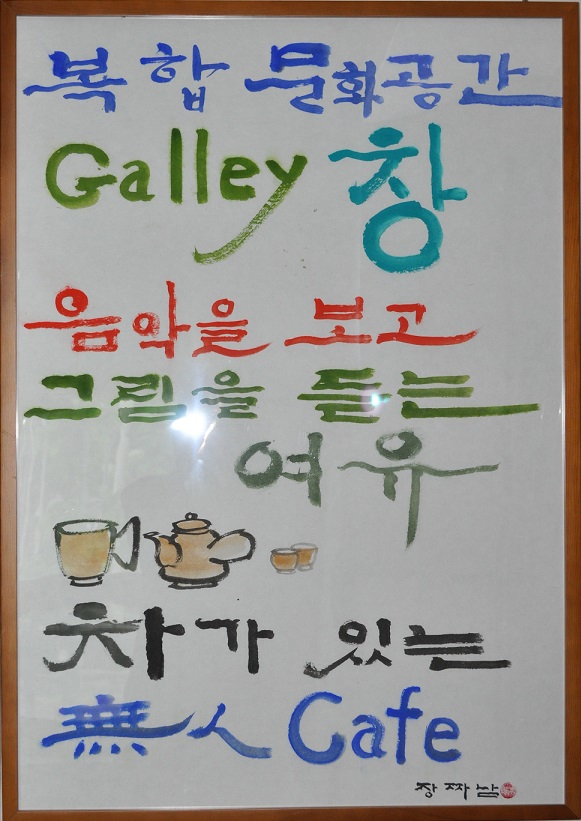 복합 문화공간
Galley 창
음악을 보고
그림을 듣는
여유
차가 있는
無人 Cafe
장짜남